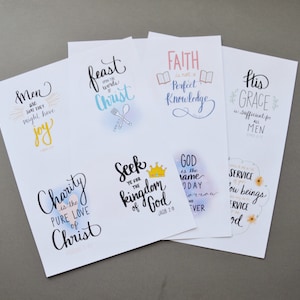 Men
ARE THAT THEY
might have
joy
feast
words
Christ
FAITH
is not a
Perfect
Knowledge
His
GRACE
is sufficient for
all
MEN
Charity
is the
PURE LOVE
of
Christ
Seek
YE FOR THE
kingdom
of God
JACOB 2:18
GOD
is the
same
TODAY
SERVICE
beings
SERVICE
God